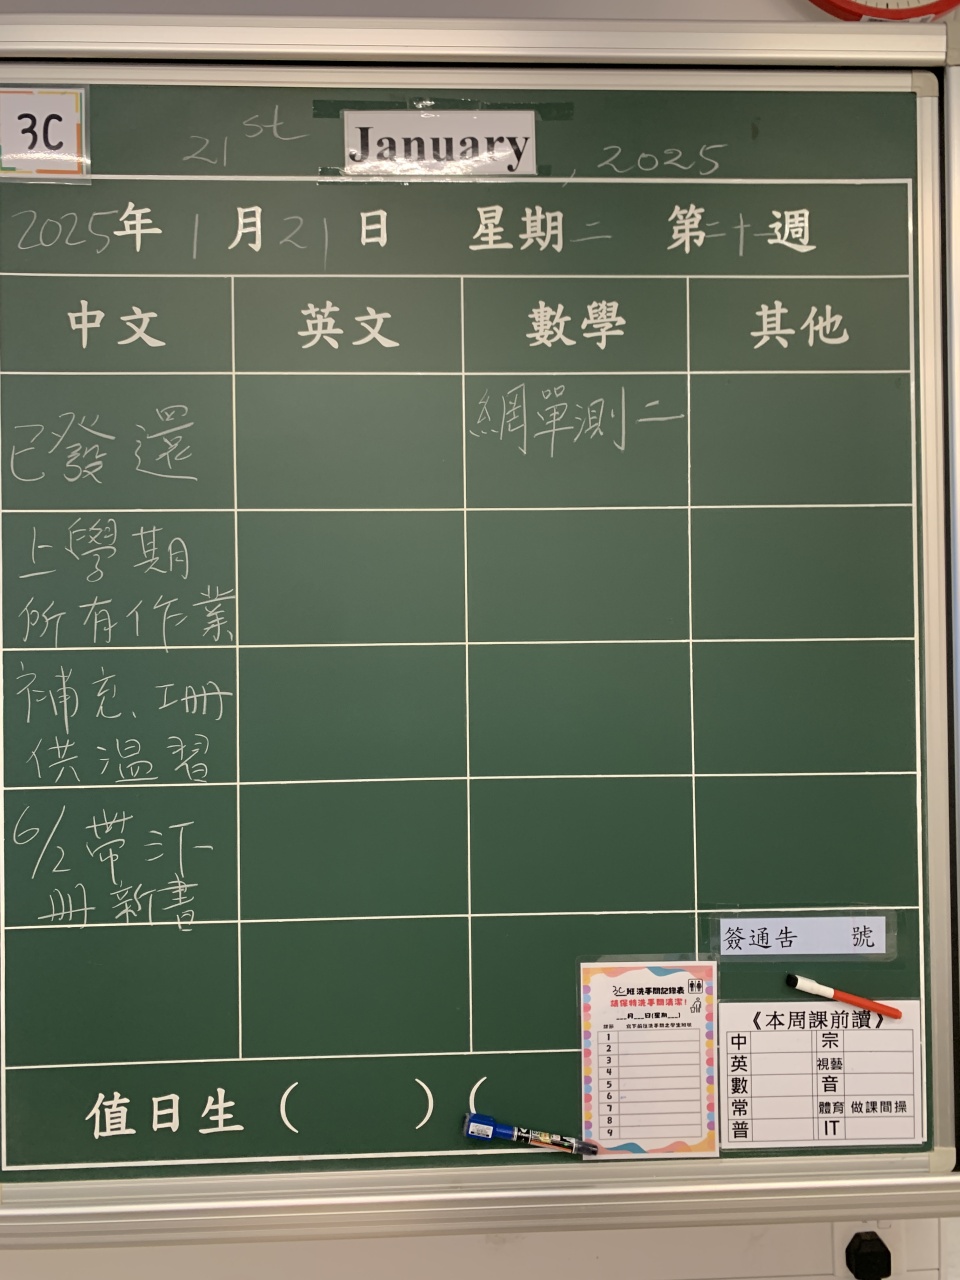 3C
21st January, 2025
2025年 1月21日 星期二 第二十一週
中文 英文 數學 其他
已發還
網單測二
上學期
所有作業
補充、工冊
供溫習
6/2 帶三下
冊新書
簽通告 號
3C班洗手間記錄表
請保持洗手間清潔！
___月___日(星期___)
1
2
3
4
5
6
7
8
9
《本周課前讀》
中 宗
英 視藝
數 音
常 體育 做課間操
普 IT
值日生 ( ) (